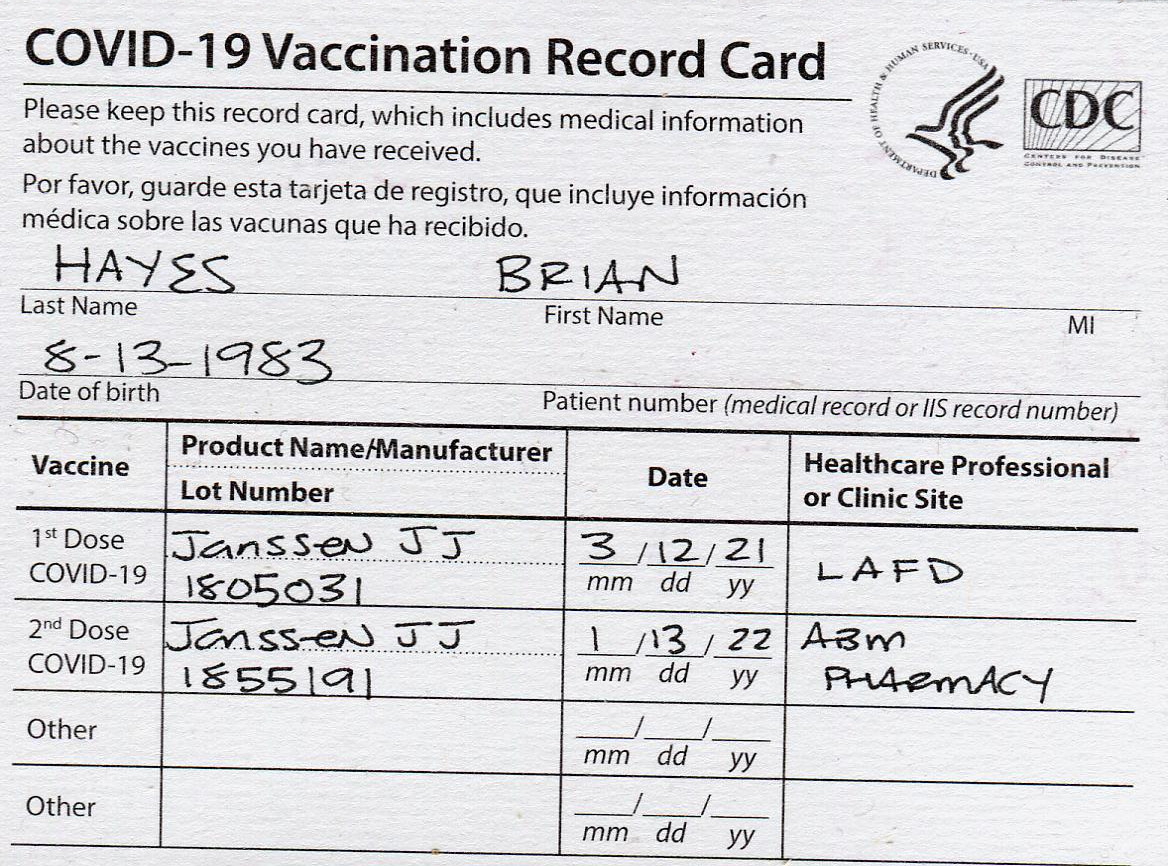 COVID-19 Vaccination Record Card
DEPARTMENT OF HEALTH & HUMAN SERVICES · USA
CDC
CENTERS FOR DISEASE
CONTROL AND PREVENTION
Please keep this record card, which includes medical information
about the vaccines you have received.
Por favor, guarde esta tarjeta de registro, que incluye información
médica sobre las vacunas que ha recibido.
HAYES BRIAN
Last Name First Name MI
8-13-1983
Date of birth Patient number (medical record or IIS record number)
Vaccine Product Name/Manufacturer Date Healthcare Professional
Lot Number or Clinic Site
1st Dose Janssen JJ 3/12/21 LAFD
COVID-19 1805031 mm dd yy
2nd Dose Janssen JJ 1/13/22 ABM
COVID-19 1855191 mm dd yy PHARMACY
Other ___/___/___
mm dd yy
Other ___/___/___
mm dd yy